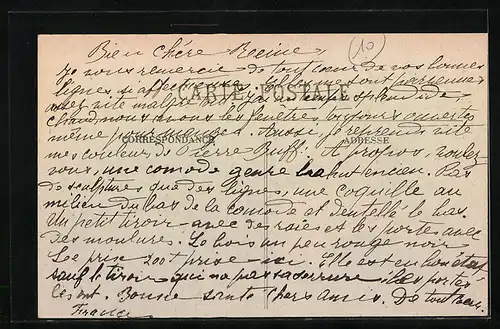 Bien chère Reine,
(10)
Je vous remercie de tout cœur de vos bonnes
lignes si affectueuses. Elles me sont parvenues
assez vite malgré
CARTE POSTALE
chaud, nous avons les fenêtres toujours ouvertes
même pour manger. Aussi je reprends vite
CORRESPONDANCE
ADRESSE
mes couleurs de Pierre Buff. A propos, voulez
vous, une comode genre ancien. Pas
de sculptures que des lignes, une coquille au
milieu du bas de la comode et dentellé le bas.
Un petit tiroir avec des raies et les portes avec
des moulures. Le bois un peu rouge noir
Le prix 200f prise ici. Elle est en bon état
sauf le tiroir qui n'a pas sa serrure les portes
l'ont. Bonne santé chers amis. De tout cœur
France